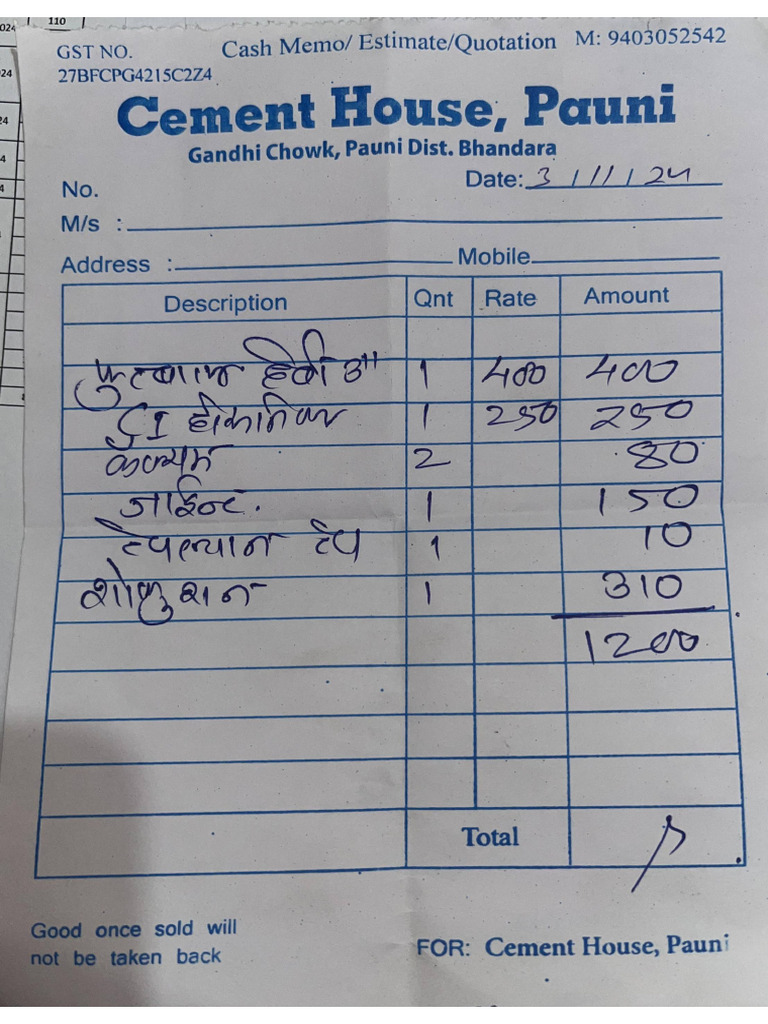 110
GST NO. Cash Memo/ Estimate/Quotation M: 9403052542
27BFCPG4215C2Z4
Cement House, Pauni
Gandhi Chowk, Pauni Dist. Bhandara
No. Date: 3/11/24
M/s :
Address : Mobile
Description Qnt Rate Amount
1 400 400
CI 1 250 250
2 80
जाईन्ट. 1 150
टेप 1 10
1 310
1200
Total
Good once sold will
not be taken back
FOR: Cement House, Pauni